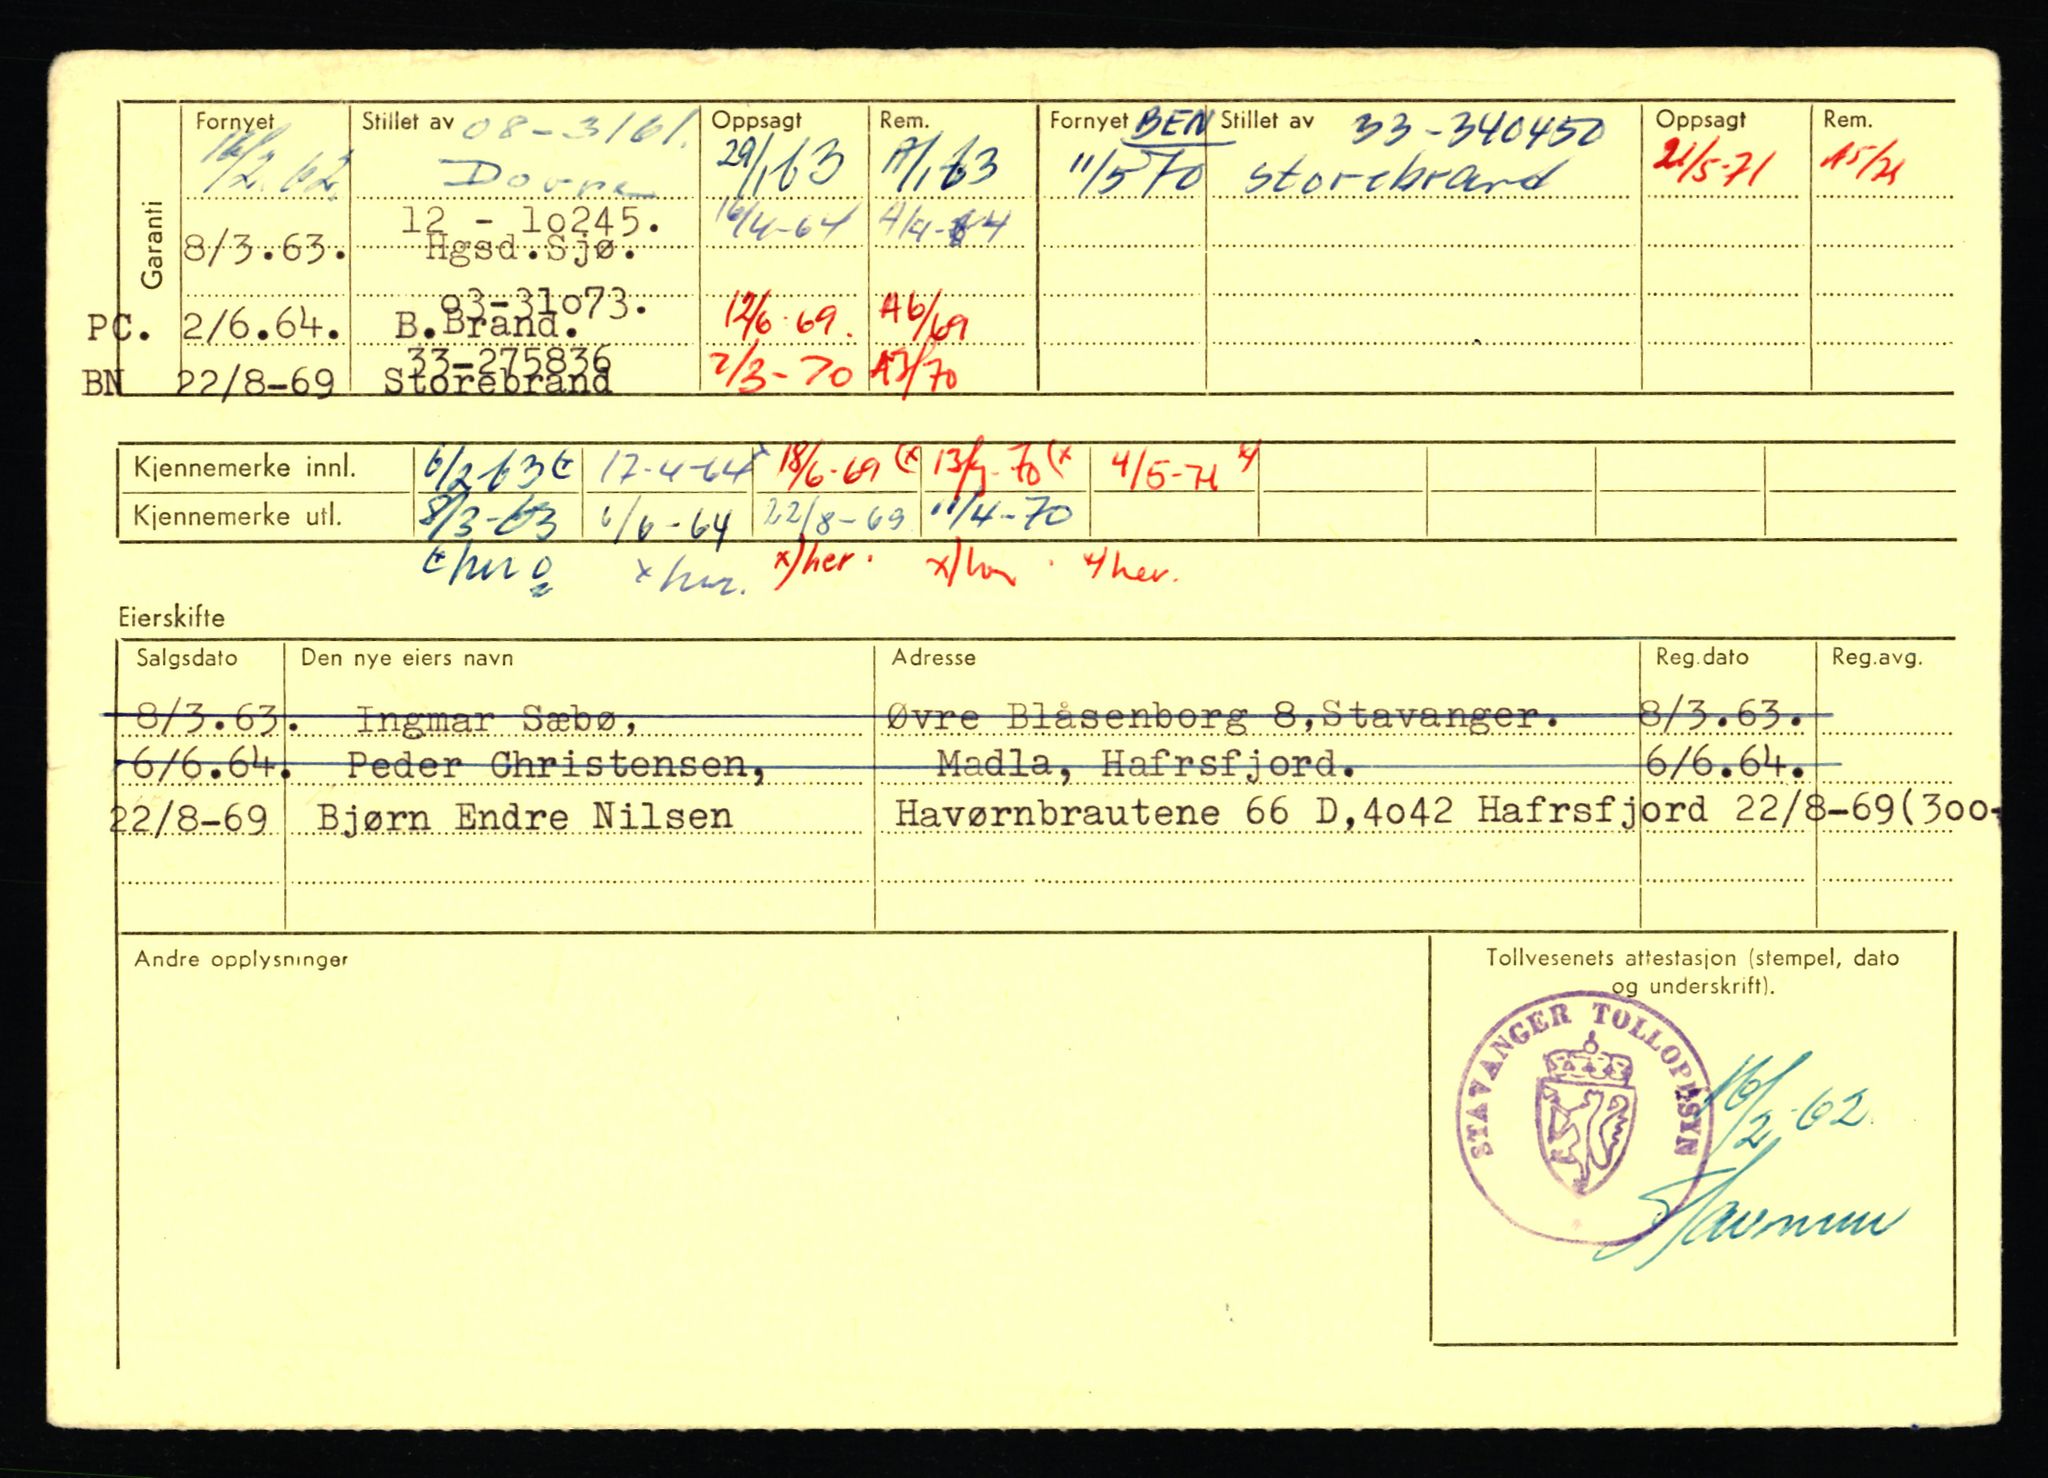 Garanti
Fornyet Stillet av Oppsagt Rem. Fornyet Stillet av Oppsagt Rem.
16/2.62 08-3161. Dovre 29/1 63 A/1 63 BEN 11/5 70 33-340450 Storebrand 21/5-71 A5/71
8/3.63. 12 - 1o245. Hgsd.Sjø. 16/4-64 A/4-64
PC. 2/6.64. o3-31o73. B.Brand. 12/6-69. A6/69
BN 22/8-69 33-275836 Storebrand 2/3-70 A3/70
Kjennemerke innl. 6/2-63 17-4-64 x 18/6-69 (x 13/4-70 (x 4/5-71 x)
Kjennemerke utl. 8/3-63 6/6-64 22/8-69 11/4-70
her x her. x) her. x) her. x) her.
Eierskifte
Salgsdato Den nye eiers navn Adresse Reg.dato Reg.avg.
8/3.63. Ingmar Sæbø, Øvre Blåsenborg 8,Stavanger. 8/3.63.
6/6.64. Peder Christensen, Madla, Hafrsfjord. 6/6.64.
22/8-69 Bjørn Endre Nilsen Havørnbrautene 66 D,4o42 Hafrsfjord 22/8-69(3oo-
Andre opplysninger
Tollvesenets attestasjon (stempel, dato
og underskrift).
STAVANGER TOLLOPPSYN
16/2-62